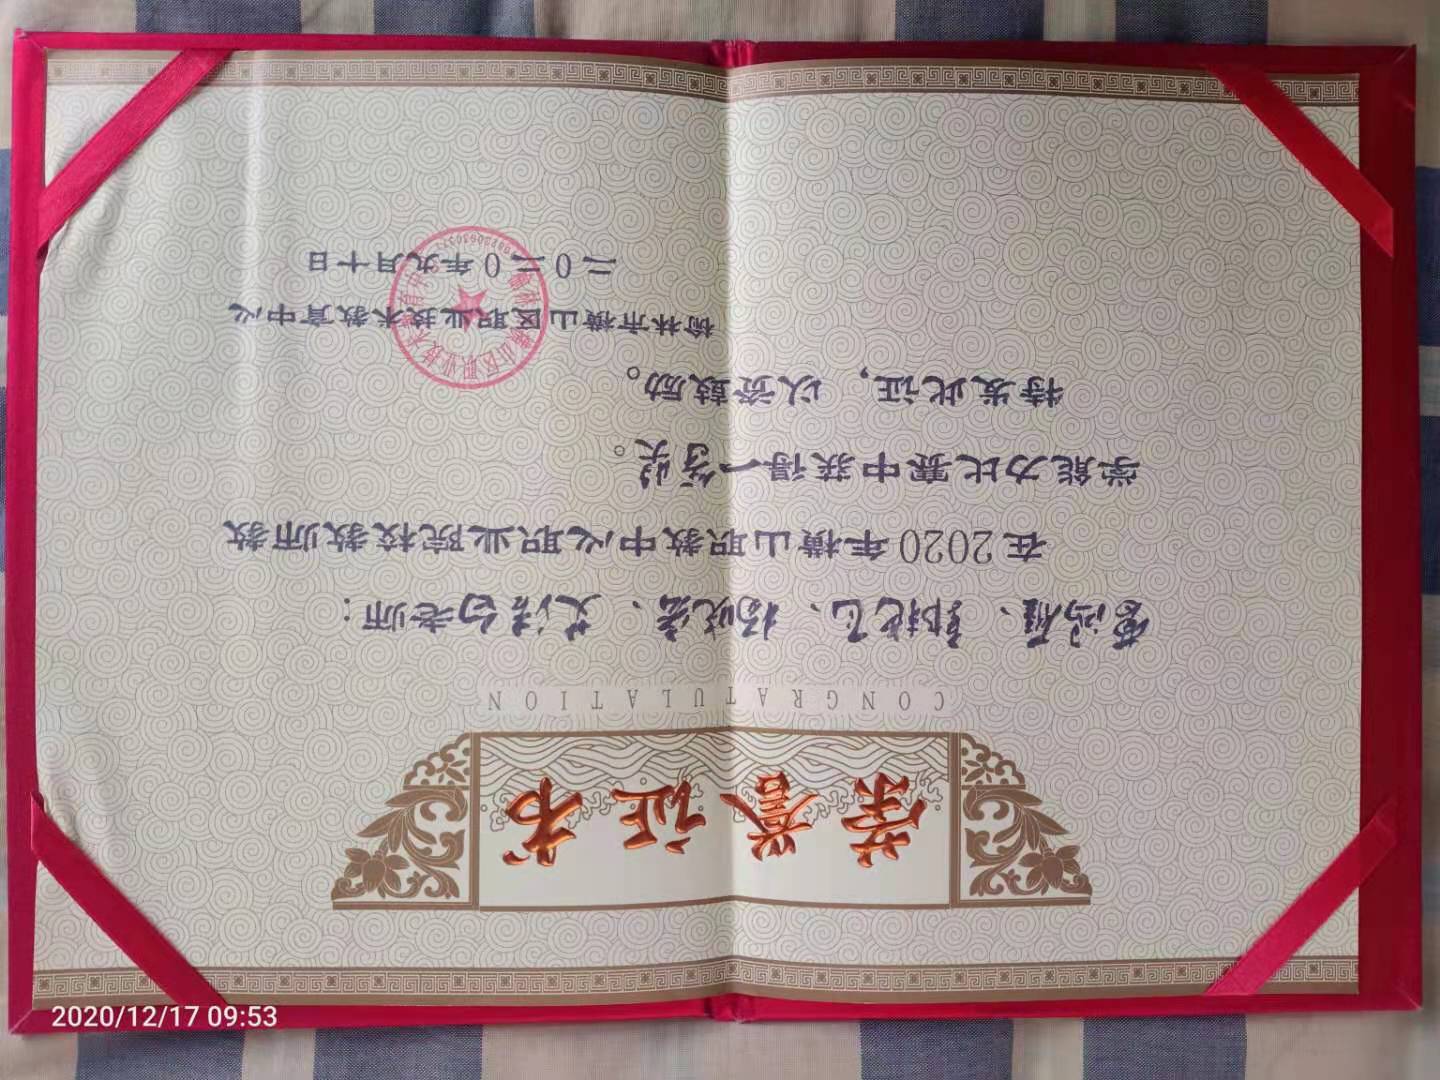 荣誉证书
CONGRATULATION
鸿雁、郭艳飞、杨晓宏、艾老师：
在2020年横山职教中心职业院校教师教
学能力比赛中获得一等奖。
特发此证，以资鼓励。
榆林市横山区职业技术教育中心
二0二0年九月十日
2020/12/17 09:53